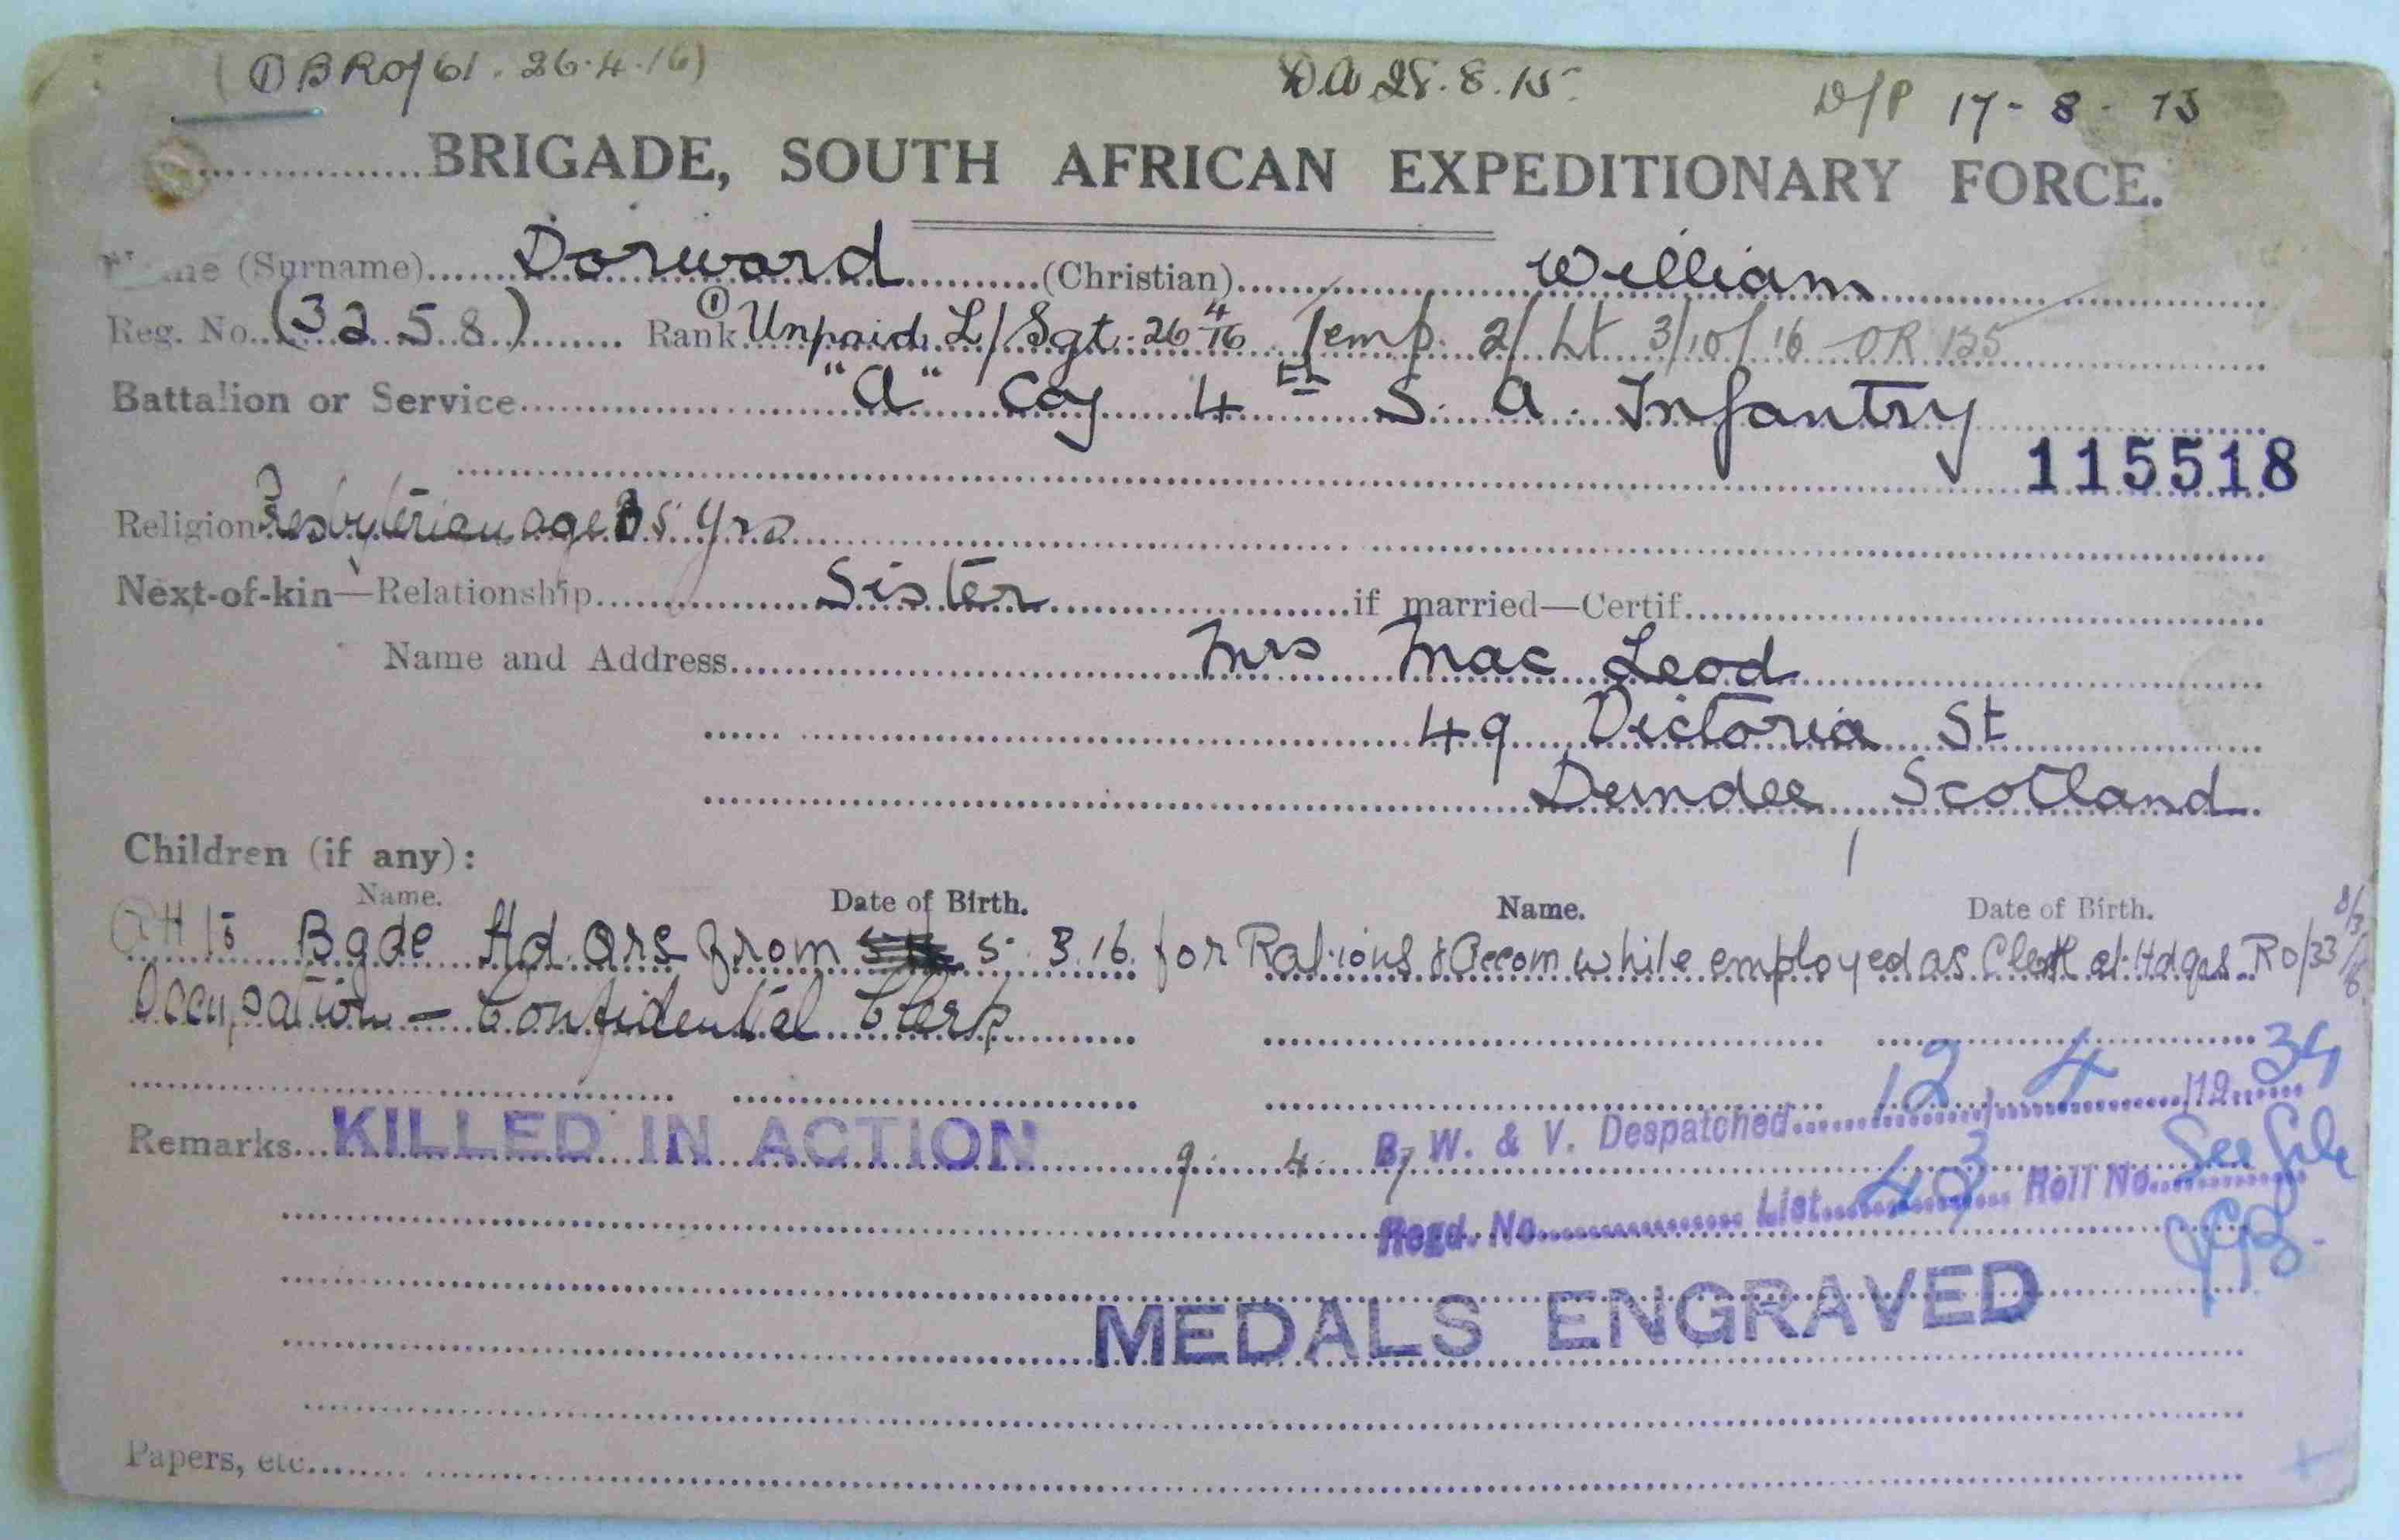 (① BRO/61. 26.4.16) DA 28.8.15. D/P 17-8-15
BRIGADE, SOUTH AFRICAN EXPEDITIONARY FORCE.
Name (Surname) Dorward (Christian) William
Reg. No. (3258) Rank ① Unpaid L/Sgt. 26/4/16 Temp. 2/Lt 3/10/16 OR 125
Battalion or Service "A" Coy 4th S. A. Infantry
115518
Religion Presbyterian age 35 yrs
Next-of-kin—Relationship Sister if married—Certif.
Name and Address Mrs Mac Leod
49 Victoria St
Dundee Scotland
Children (if any):
Name. Date of Birth. Name. Date of Birth.
Bgde Hd Qrs from 5.3.16. for Rations & Accom while employed as Clerk at Hdqrs. RO/33 8/3/16
Occupation — Confidential Clerk
B. W. & V. Despatched 12 / 4 /19 34
Remarks KILLED IN ACTION 9. 4. 17
Regd. No. List 43 Roll No. See file
MEDALS ENGRAVED
Papers, etc.